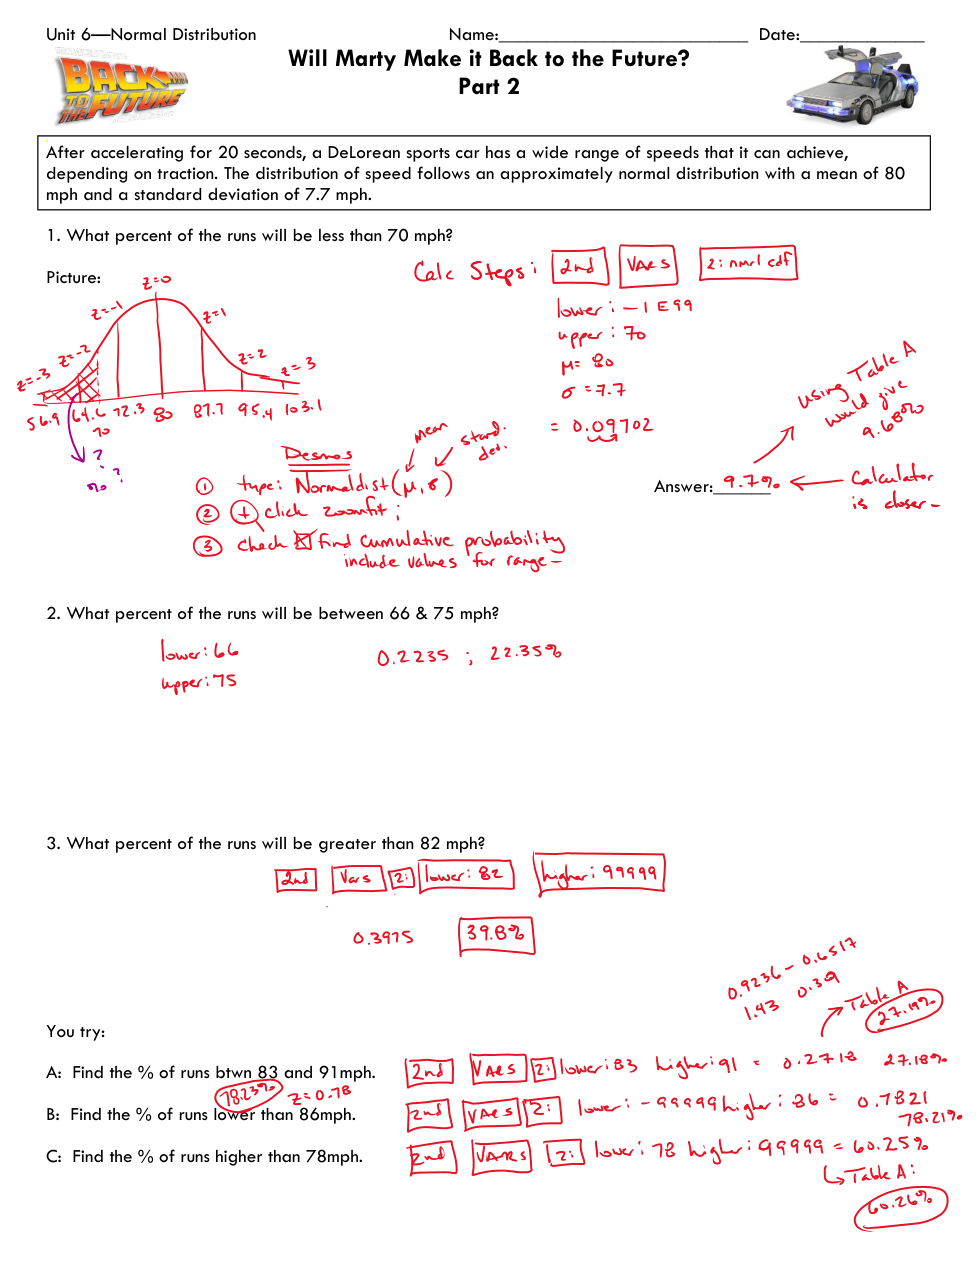 Unit 6—Normal Distribution Name:____________________________ Date:______________
Will Marty Make it Back to the Future?
Part 2
BACK
TO THE FUTURE
After accelerating for 20 seconds, a DeLorean sports car has a wide range of speeds that it can achieve,
depending on traction. The distribution of speed follows an approximately normal distribution with a mean of 80
mph and a standard deviation of 7.7 mph.
1. What percent of the runs will be less than 70 mph?
Picture:
z=-3 z=-2 z=-1 z=0 z=1 z=2 z=3
56.9 64.6 72.3 80 87.7 95.4 103.1
70
?
% ?
Calc Steps: 2nd VARS 2: nmrl cdf
lower: -1E99
upper: 70
μ= 80
σ = 7.7
= 0.09702
using Table A
would give
9.68%
Answer:______ 9.7% ← Calculator
is closer-
Desmos
mean stand. dev.
① type: Normaldist(μ, σ)
② + click zoomfit;
③ check ☒ find cumulative probability
include values for range-
2. What percent of the runs will be between 66 & 75 mph?
lower: 66
upper: 75
0.2235 ; 22.35%
3. What percent of the runs will be greater than 82 mph?
2nd Vars 2: lower: 82 higher: 99999
0.3975 39.8%
0.9236 - 0.6517
1.43 0.39
Table A
27.19%
You try:
A: Find the % of runs btwn 83 and 91mph. 2nd VARS 2: lower: 83 higher: 91 = 0.2718 27.18%
78.23% z=0.78
B: Find the % of runs lower than 86mph. 2nd VARS 2: lower: -99999 higher: 86 = 0.7821
78.21%
C: Find the % of runs higher than 78mph. 2nd VARS 2: lower: 78 higher: 99999 = 60.25%
↳ Table A:
60.26%